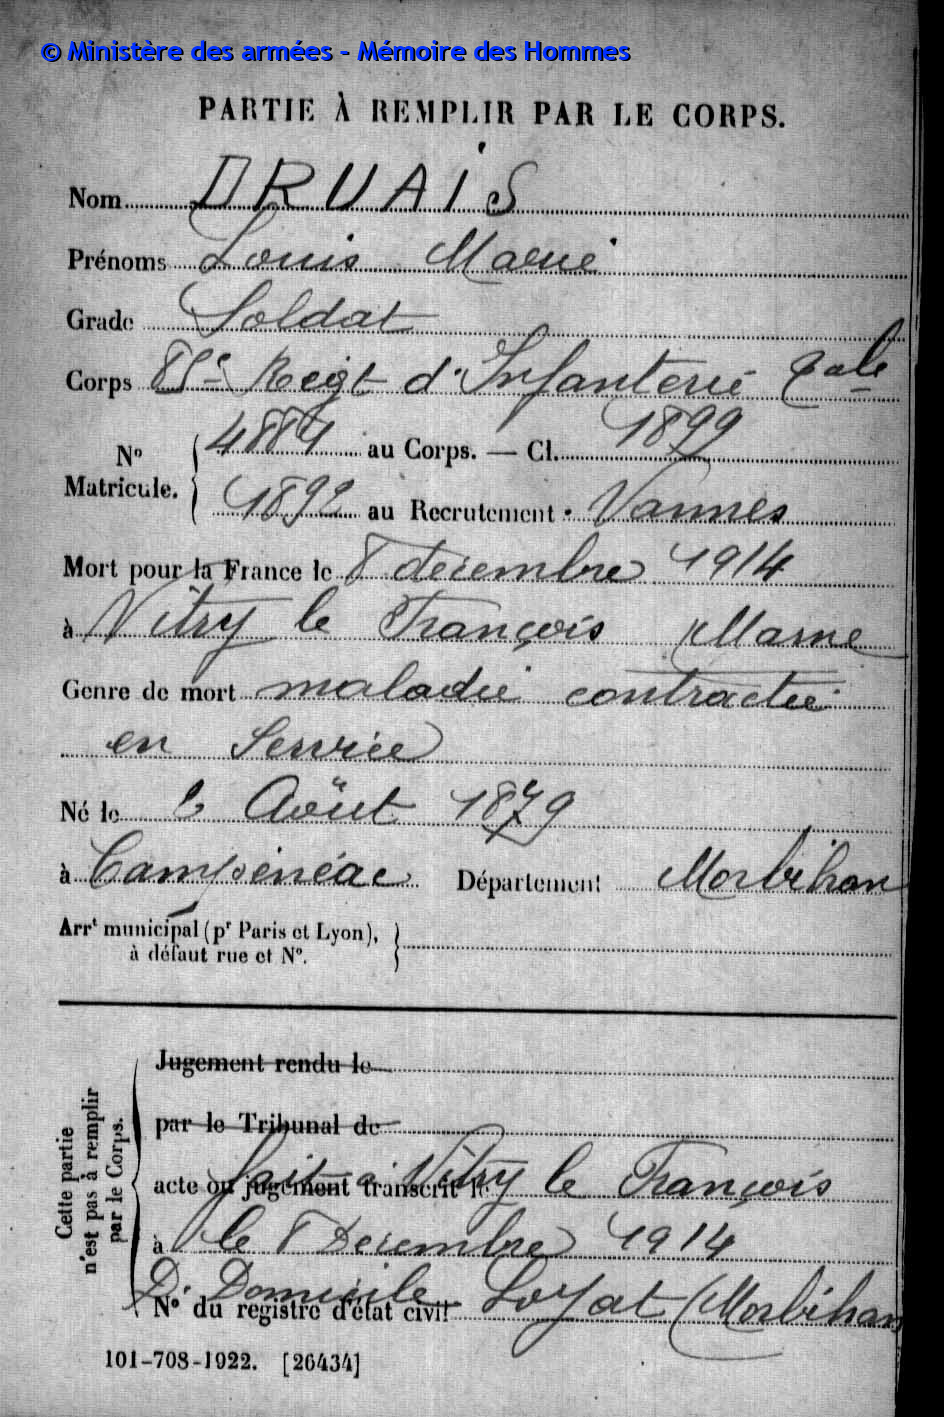 © Ministère des armées - Mémoire des Hommes
PARTIE À REMPLIR PAR LE CORPS.
Nom DRUAIS
Prénoms Louis Marie
Grade Soldat
Corps 85e Regt d'Infanterie Cole
No Matricule. 4884 au Corps. — Cl. 1899
1892 au Recrutement Vannes
Mort pour la France le 8 décembre 1914
à Vitry le François Marne
Genre de mort maladie contractée
en Service
Né le 2 Août 1879
à Campénéac Département Morbihan
Arrt municipal (pr Paris et Lyon),
à défaut rue et No.
Cette partie
n'est pas à remplir
par le Corps.
Jugement rendu le
par le Tribunal de
fait à Vitry le François
acte ou jugement transcrit le
à le 8 Décembre 1914
Dr Domicile Loyat (Morbihan
No du registre d'état civil
101-708-1922. [26434]